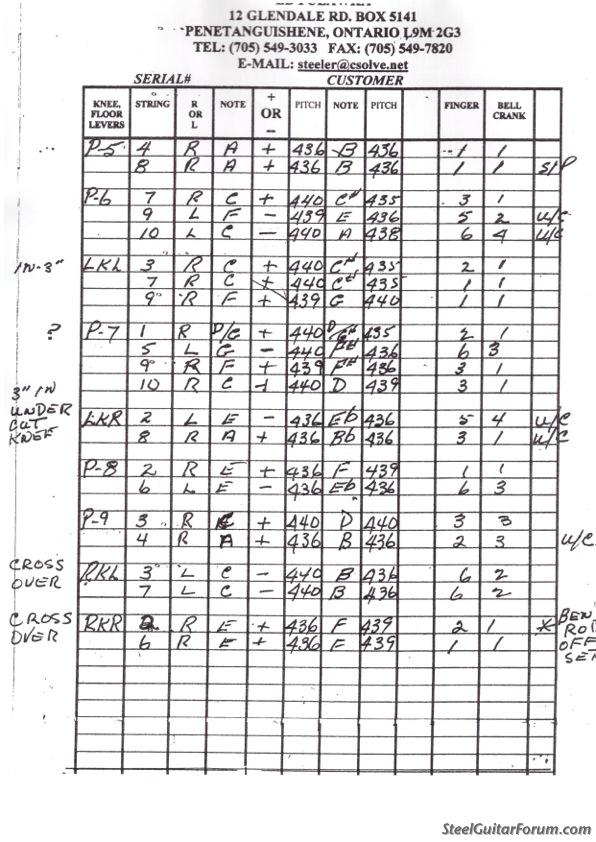 12 GLENDALE RD. BOX 5141
PENETANGUISHENE, ONTARIO L9M 2G3
TEL: (705) 549-3033 FAX: (705) 549-7820
E-MAIL: steeler@csolve.net
SERIAL# CUSTOMER
KNEE, FLOOR LEVERS STRING R OR L NOTE + OR − PITCH NOTE PITCH FINGER BELL CRANK
P-5 4 R A + 436 B 436 1 1
8 R A + 436 B 436 1 1 S/P
P-6 7 R C + 440 C# 435 3 1
9 L F − 439 E 436 5 2 U/C
10 L C − 440 A 438 6 4 U/C
IN-3" LKL 3 R C + 440 C# 435 2 1
7 R C + 440 C# 435 1 1
9 R F + 439 G 440 1 1
? P-7 1 R D/C + 440 435 2 1
5 L G − 440 F# 436 6 3
9 R F + 439 F# 436 3 1
10 R C + 440 D 439 3 1
3" IN
UNDER CUT KNEE
LKR 2 L E − 436 Eb 436 5 4 U/C
8 R A + 436 Bb 436 3 1 U/C
P-8 2 R E + 436 F 439 1 1
6 L E − 436 Eb 436 6 3
P-9 3 R C + 440 D 440 3 3
4 R A + 436 B 436 2 3 U/C
CROSS OVER RKL 3 L C − 440 B 436 6 2
7 L C − 440 B 436 6 2
CROSS OVER RKR 2 R E + 436 F 439 2 1 *
6 R E + 436 F 439 1 1
BEN
RO
OFF
SE
SteelGuitarForum.com